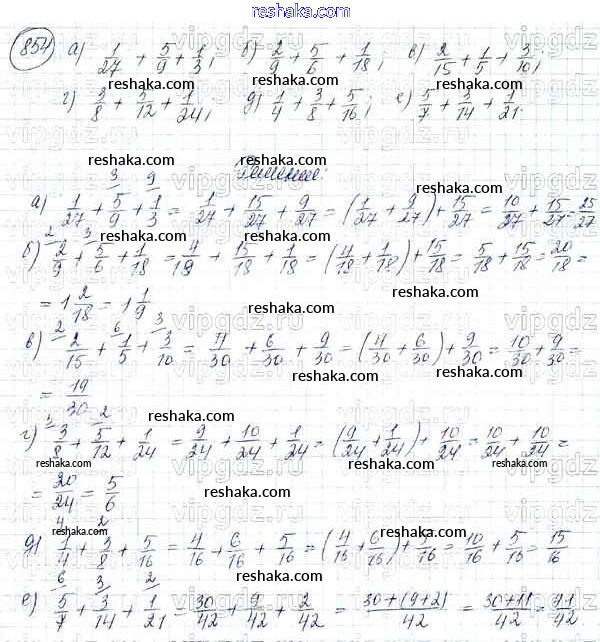 854 а) 1/27 + 5/9 + 1/3; б) 2/9 + 5/6 + 1/18; в) 2/15 + 1/5 + 3/10;
г) 3/8 + 5/12 + 1/24; д) 1/4 + 3/8 + 5/16; е) 5/7 + 3/14 + 1/21.
Решение:
а) 1/27 + 5/9 + 1/3 = 1/27 + 15/27 + 9/27 = (1/27 + 9/27) + 15/27 = 10/27 + 15/27 = 25/27
б) 2/9 + 5/6 + 1/18 = 4/18 + 15/18 + 1/18 = (4/18 + 1/18) + 15/18 = 5/18 + 15/18 = 20/18 =
= 1 2/18 = 1 1/9
в) 2/15 + 1/5 + 3/10 = 4/30 + 6/30 + 9/30 = (4/30 + 6/30) + 9/30 = 10/30 + 9/30 =
= 19/30
г) 3/8 + 5/12 + 1/24 = 9/24 + 10/24 + 1/24 = (9/24 + 1/24) + 10/24 = 10/24 + 10/24 =
= 20/24 = 5/6
д) 1/4 + 3/8 + 5/16 = 4/16 + 6/16 + 5/16 = (4/16 + 6/16) + 5/16 = 10/16 + 5/16 = 15/16
е) 5/7 + 3/14 + 1/21 = 30/42 + 9/42 + 2/42 = 30+(9+2)/42 = 30+11/42 = 41/42
reshaka.com
vipgdz.ru